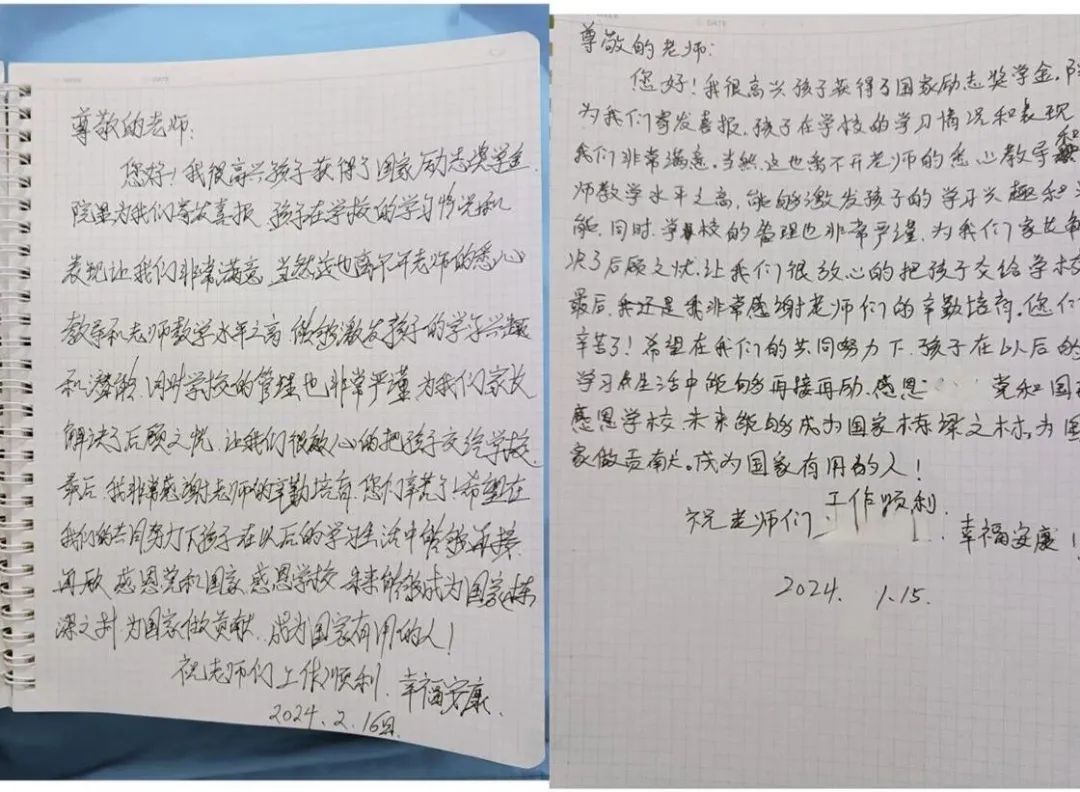 尊敬的老师:
您好!我很高兴孩子获得了国家励志奖学金
院里为我们寄发喜报 孩子在学校的学习情况和
表现让我们非常满意 当然这也离不开老师的悉心
教导和老师教学水平之高 能够激发孩子的学习兴趣
和潜能 同时学校的管理也非常严谨 为我们家长
解决了后顾之忧 让我们很放心的把孩子交给学校
最后 我非常感谢老师的辛勤培育 您们辛苦了!希望在
我们的共同努力下孩子在以后的学习生活中能够再接
再励 感恩党和国家 感恩学校 未来能够成为国家栋
梁之材 为国家做贡献 成为国家有用的人!
祝老师们工作顺利 幸福安康
2024.2.16日
DATE
尊敬的老师:
您好!我很高兴孩子获得了国家励志奖学金,院
为我们寄发喜报,孩子在学校的学习情况和表现
我们非常满意.当然这也离不开老师的悉心教导和
师教学水平之高,能够激发孩子的学习兴趣和
能.同时,学校的管理也非常严谨,为我们家长解
决了后顾之忧.让我们很放心的把孩子交给学校
最后,我还是我非常感谢老师们的辛勤培育.您们
辛苦了!希望在我们的共同努力下,孩子在以后的
学习生活中能够再接再励.感恩 党和国
感恩学校.未来能够成为国家栋梁之材.为国
家做贡献。成为国家有用的人!
祝老师们 工作顺利. 幸福安康!
2024. 1.15.